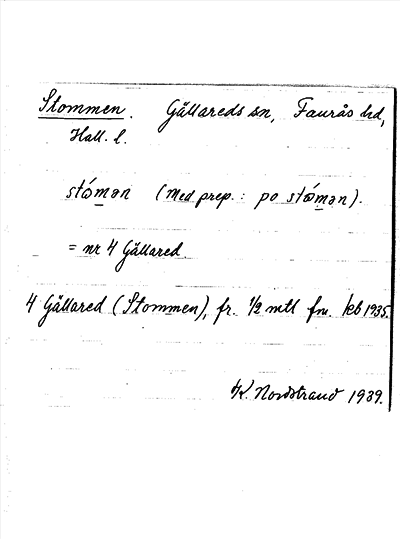 Stommen. Gällareds sn, Faurås hd,
Hall. l.
stώmən (Med prep.: po stώmən).
= nr 4 Gällared.
4 Gällared (Stommen), fr. 1/2 mtl fm. kb 1935.
K. Nordstrand 1939.